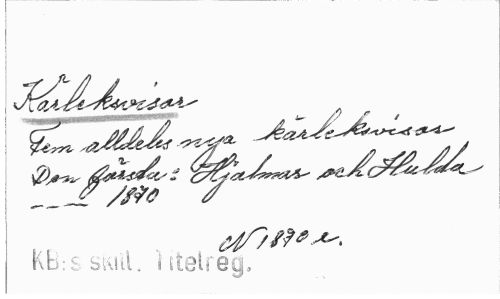 Kärleksvisor
Fem alldeles nya kärleksvisor
Den första: Hjalmar och Hulda
— — — 1870
N 1870 e.
KB:s skill. Titelreg.